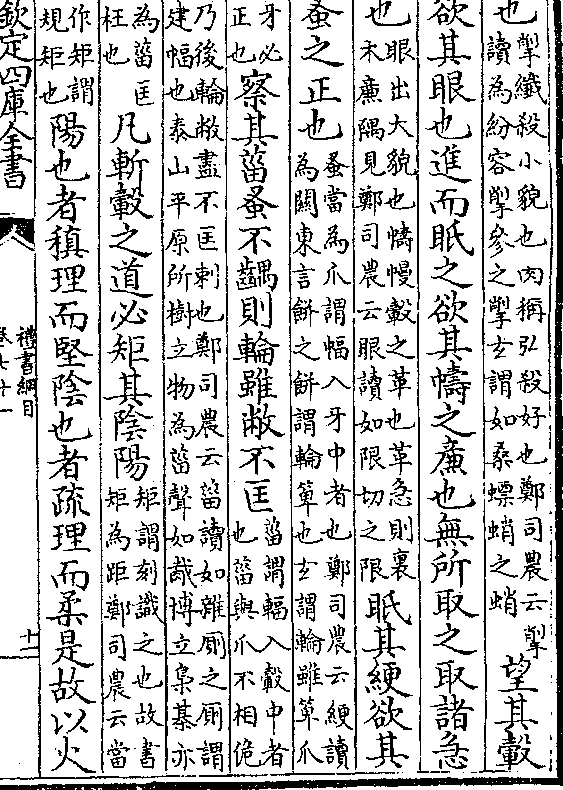 也掣纖殺小貌也肉稱弘殺好也鄭司農云掣讀為紛容掣參之掣玄謂如桑螵蛸之蛸望其轂
欲其眼也進而眡之欲其幬之亷也無所取之取諸急
也眼出大貌也幬幔轂之革也革急則裏木亷隅見鄭司農云眼讀如限切之限眡其綆欲其
蚤之正也蚤當為爪謂幅入牙中者也鄭司農云綆讀為關東言餅之餅謂輪箄也玄謂輪雖箄爪
牙必正也察其菑蚤不齵則輪雖敝不匡菑謂輻入轂中者也菑與爪不相佹
乃後輪敝盡不匡刺也鄭司農云菑讀如雜厠之厠謂建幅也泰山平原所樹立物為菑聲如胾博立梟棊亦
為菑匡枉也凡斬轂之道必矩其陰陽矩謂刻識之也故書矩為距鄭司農云當
作矩謂規矩也陽也者稹理而堅陰也者疏理而柔是故以火
欽定四庫全書
禮書綱目
卷七十一
十二